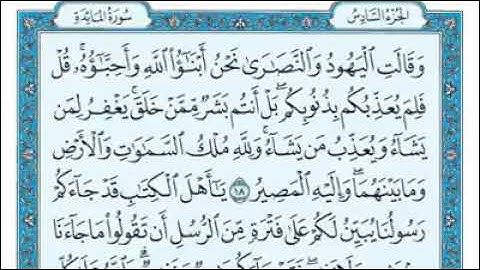 سُورَةُ المَائِدَةِ
الجُزْءُ السَّادِسُ
وَقَالَتِ الْيَهُودُ وَالنَّصَارَىٰ نَحْنُ أَبْنَاؤُا اللَّهِ وَأَحِبَّاؤُهُ ۚ قُلْ
فَلِمَ يُعَذِّبُكُم بِذُنُوبِكُم ۖ بَلْ أَنتُم بَشَرٌ مِّمَّنْ خَلَقَ ۚ يَغْفِرُ لِمَن
يَشَاءُ وَيُعَذِّبُ مَن يَشَاءُ ۚ وَلِلَّهِ مُلْكُ السَّمَاوَاتِ وَالْأَرْضِ
وَمَا بَيْنَهُمَا ۖ وَإِلَيْهِ الْمَصِيرُ ١٨ يَا أَهْلَ الْكِتَابِ قَدْ جَاءَكُمْ
رَسُولُنَا يُبَيِّنُ لَكُمْ عَلَىٰ فَتْرَةٍ مِّنَ الرُّسُلِ أَن تَقُولُوا مَا جَاءَنَا